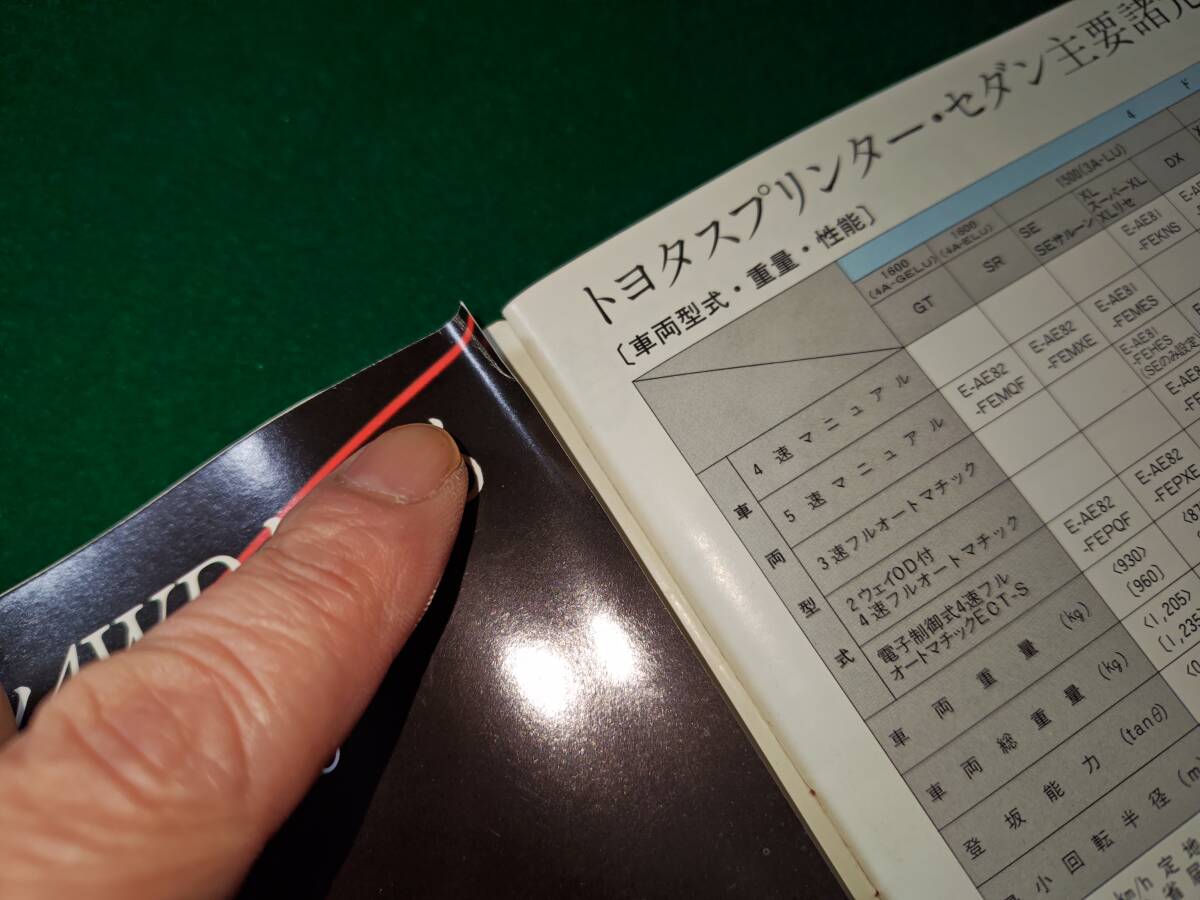 トヨタスプリンター・セダン主要諸元
〔車両型式・重量・性能〕
4 ド
1600
(4A-GELU)
1600
(4A-ELU)
1500(3A-LU)
GT
SR
SE
SEサルーン
XL
スーパーXL
XLリセ
DX
車両型式
4速マニュアル
E-AE81
-FEKNS
5速マニュアル
E-AE82
-FEMQF
E-AE82
-FEMXE
E-AE81
-FEMES
3速フルオートマチック
E-AE81
-FEHES
(SEのみ設定)
2ウェイOD付
4速フルオートマチック
電子制御式4速フル
オートマチックECT-S
E-AE82
-FEPQF
E-AE82
-FEPXE
車両重量 (kg)
〈930〉
〔960〕
車両総重量 (kg)
〈1,205〉
登坂能力 (tanθ)
小回転半径 (m)
km/h 定 地
4WD